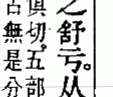 之舒亏。从
俱切。五部
古無是分